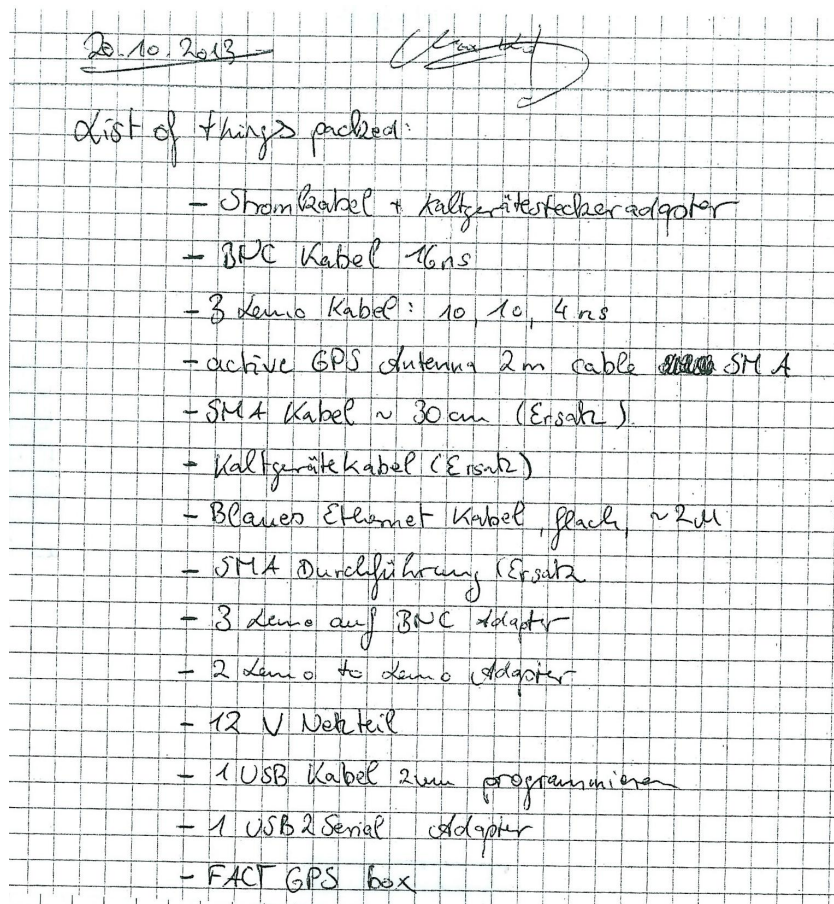 20.10.2013
List of things packed:
- Stromkabel + Kaltgerätesteckeradapter
- BNC Kabel 16ns
- 3 Lemo Kabel: 10, 10, 4 ns
- active GPS Antenna 2m cable SMA
- SMA Kabel ~ 30 cm (Ersatz)
- Kaltgerätekabel (Ersatz)
- Blaues Ethernet Kabel, flach, ~2M
- SMA Durchführung (Ersatz
- 3 Lemo auf BNC Adapter
- 2 Lemo to Lemo Adapter
- 12 V Netzteil
- 1 USB Kabel zum programmieren
- 1 USB2Serial Adapter
- FACT GPS box